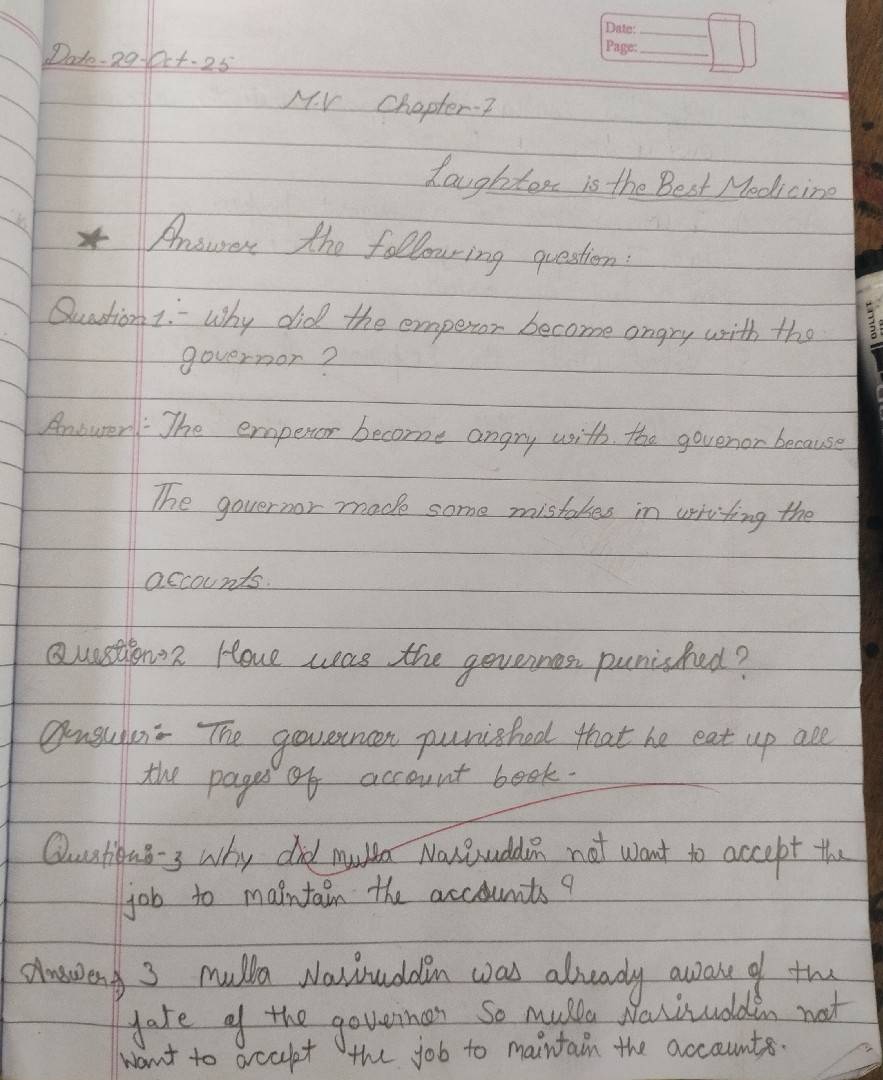 Date:
Page:
Date-29-Oct-25
M.V Chapter-7
Laughter is the Best Medicine
★ Answer the following question:
Question 1:- Why did the emperor become angry with the
governor?
Answer:- The emperor become angry with the govenor because
The governor made some mistakes in writing the
accounts.
Question-2 How was the governer punished?
Answer:- The governer punished that he eat up all
the pages of account book-
Question:-3 Why did mulla Nasiruddin not want to accept the
job to maintain the accounts?
Answer 3 Mulla Nasiruddin was already aware of the
fate of the governor So mulla Nasiruddin not
want to accept the job to maintain the accounts.